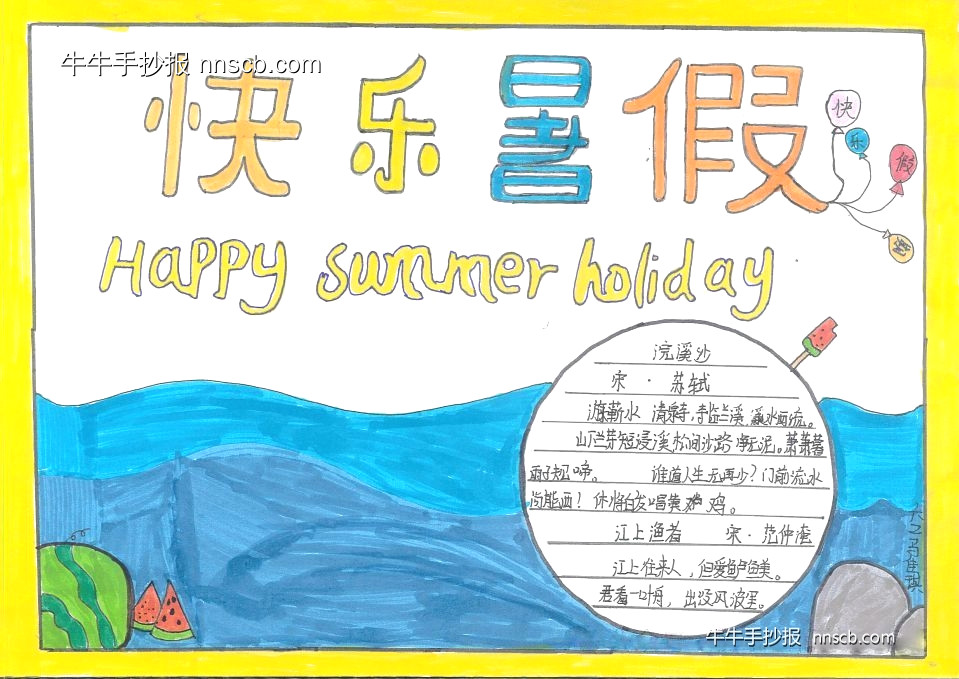 牛牛手抄报 nnscb.com
快乐暑假
快
乐
假
Happy summer holiday
浣溪沙
宋·苏轼
游蕲水清泉寺,寺临兰溪,溪水西流。
山下兰芽短浸溪,松间沙路净无泥。萧萧暮
雨子规啼。 谁道人生无再少?门前流水
尚能西!休将白发唱黄鸡。
江上渔者 宋·范仲淹
江上往来人,但爱鲈鱼美。
君看一叶舟,出没风波里。
牛牛手抄报 nnscb.com